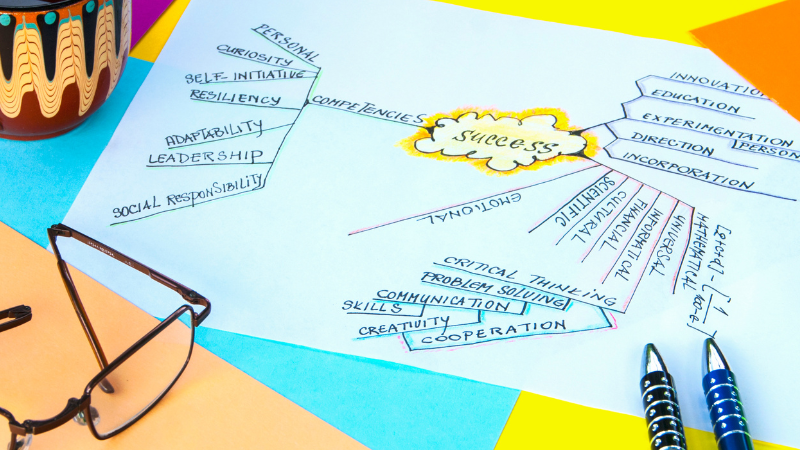 PERSONAL
CURIOSITY
SELF-INITIATIVE
RESILIENCY
ADAPTABILITY
LEADERSHIP
SOCIAL RESPONSIBILITY
COMPETENCIES
SUCCESS
INNOVATION
EDUCATION
EXPERIMENTATION
DIRECTION
PERSON
INCORPORATION
EMOTIONAL
SCIENTIFIC
CULTURAL
FINANCIAL
INFORMATICAL
UNIVERSAL
MATHEMATICAL
CRITICAL THINKING
PROBLEM SOLVING
COMMUNICATION
SKILLS
CREATIVITY
COOPERATION